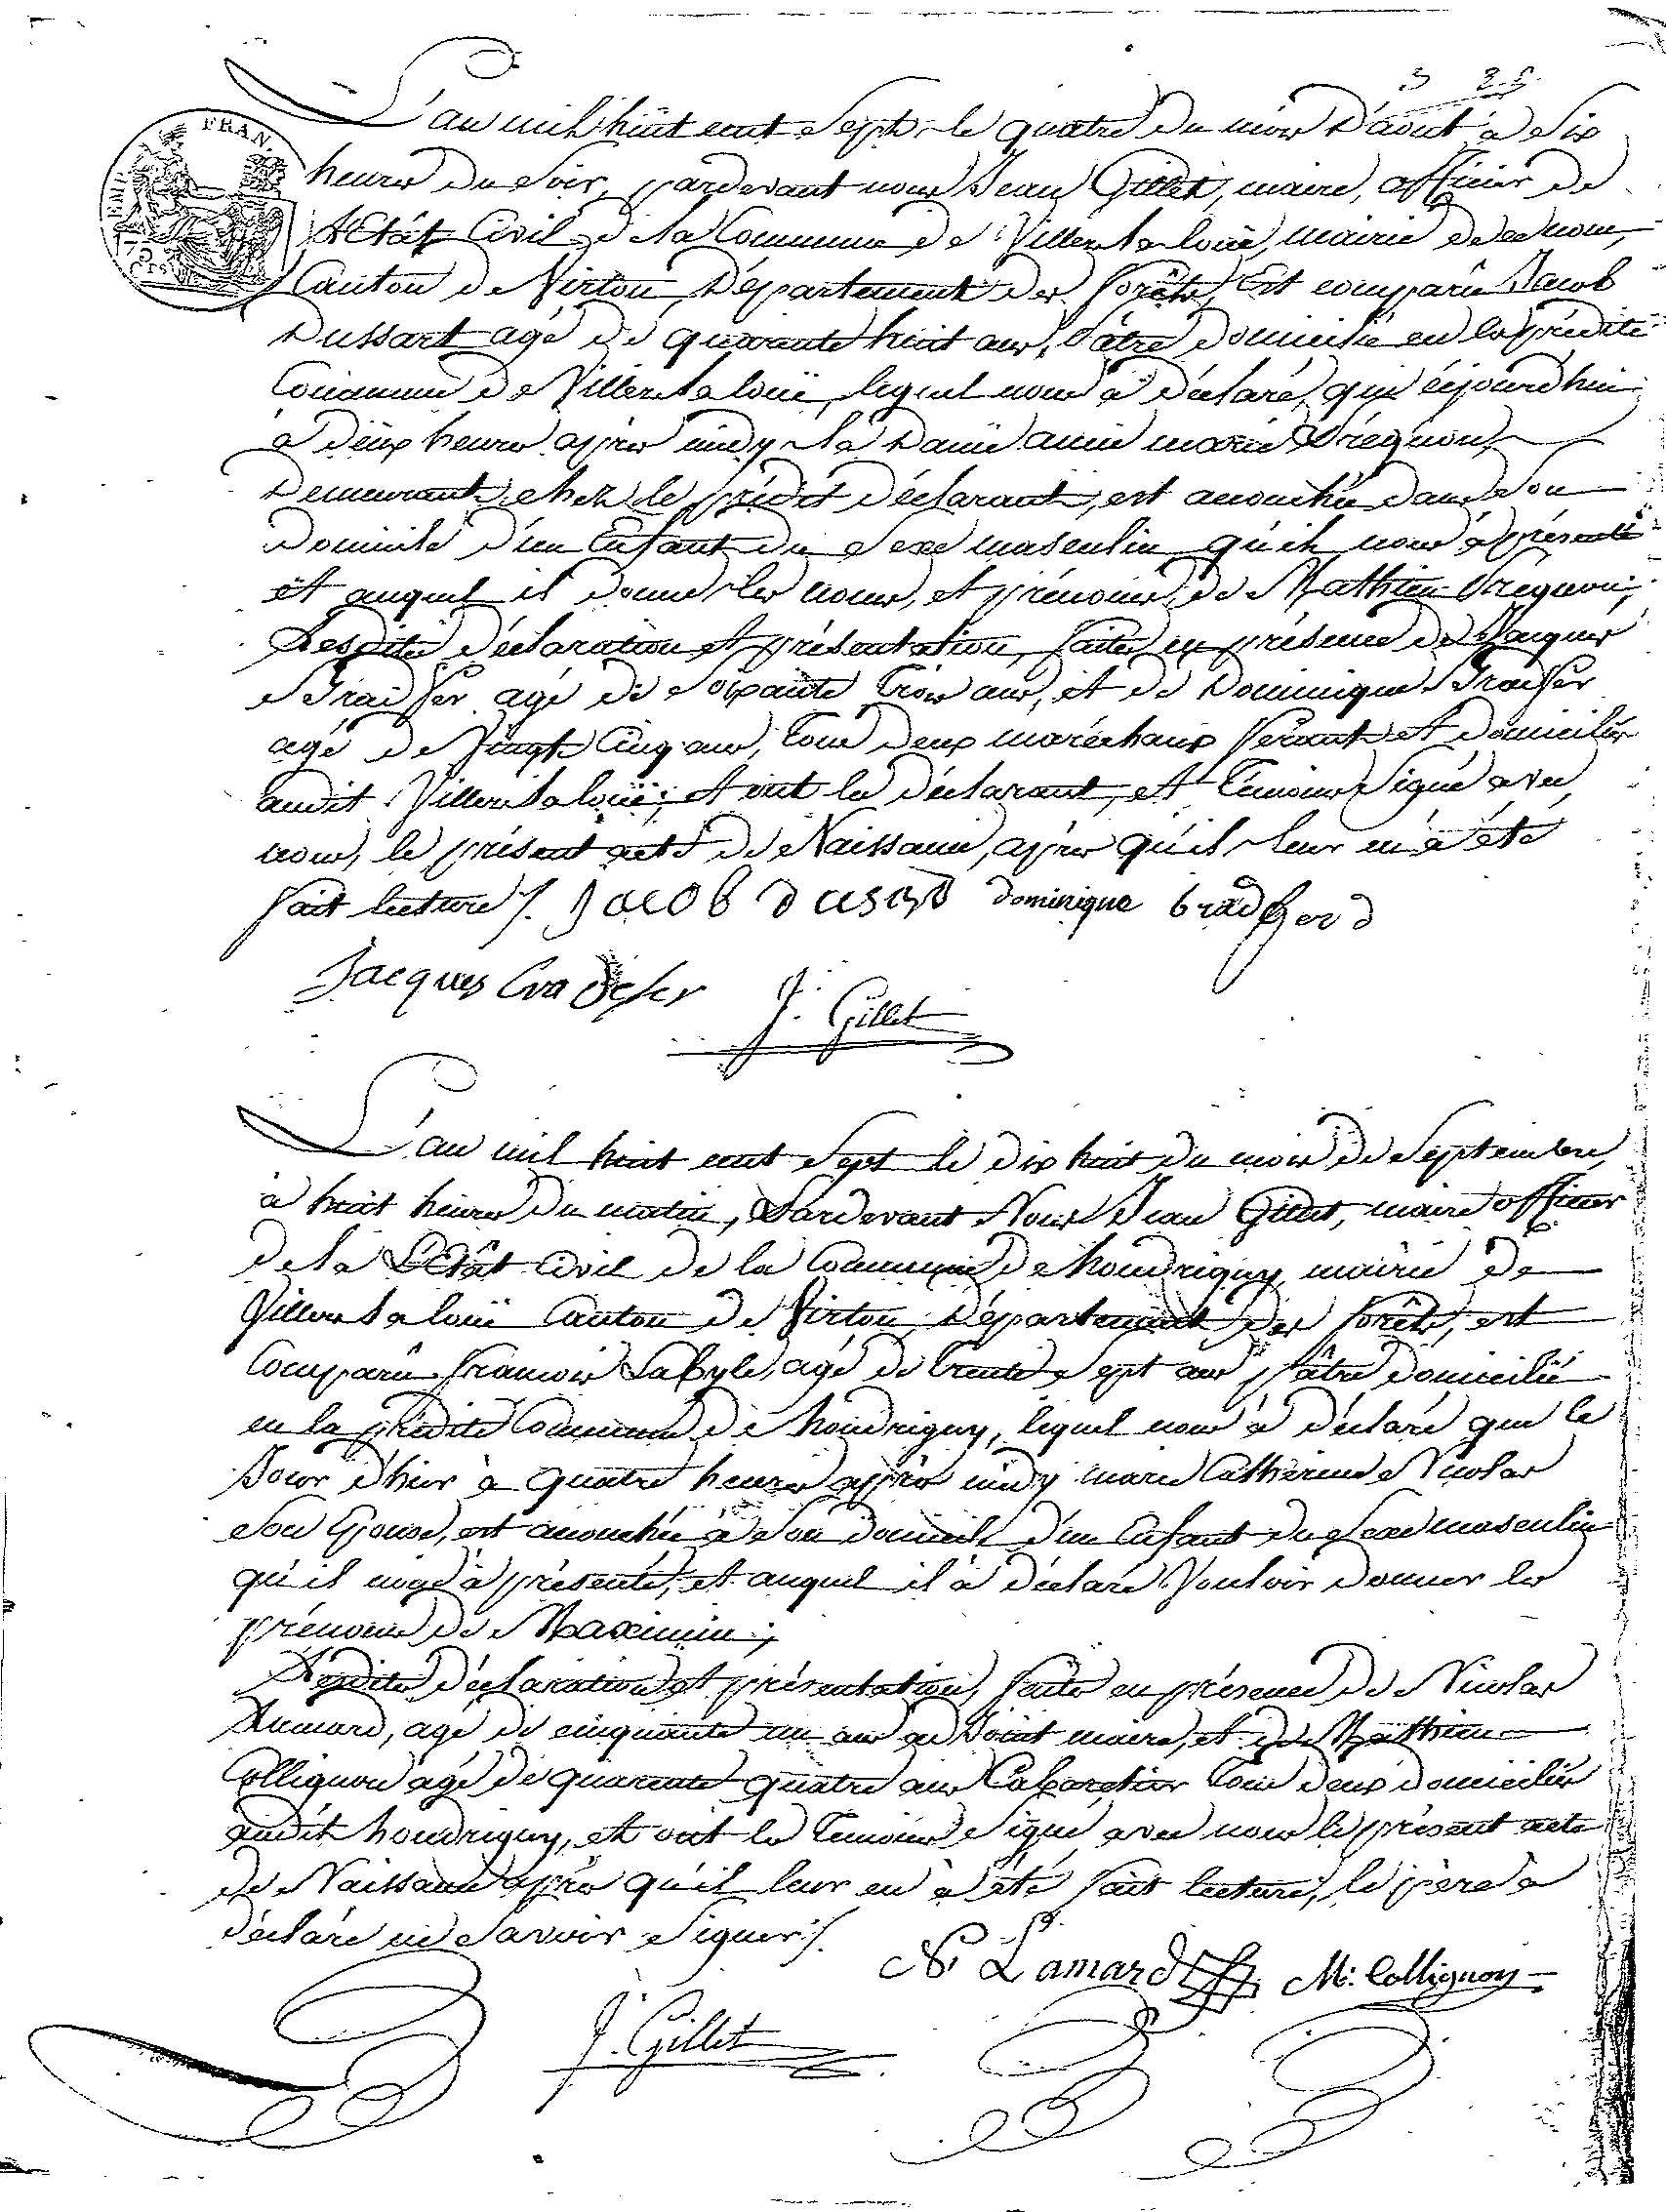 3 25
EMP. FRAN.
75 Cts
L'an mil huit cent Sept, le quatre du mois d'aout à Six
heures du Soir, pardevant nous Jean Gillet, maire, officier de
L'Etât Civil de la Commune de Villers la loüe, mairie de ce nom,
Canton de Virton, Département des forêts, Est comparû Jacob
Dussart agé de quarante huit ans, Pâtre domicilié en la prédite
Commune de Villers la loüe, lequel nous à déclaré, que éjourdhui
à deux heures après midy la Dame anne marie
Demeurant chez le prédit déclarant, est acouchée dans Son
domicile d'un Enfant du Sexe masculin qu'il nous à présenté
et auquel il donne les noms, et prénoms de Mathieu
Lesdites déclaration et présentation, faites en présence de Jacques
agé de Soixante Trois ans, et de Dominique
agé de Vingt Cinq ans, Tous deux maréchaux ferant et domiciliés
audit Villers la loüe; et ont le déclarant, et Témoins Signé avec
nous, le présent acte de Naissance, après qu'il leur en à été
fait lecture /. Jacob dusart dominique
Jacques J. Gillet
L'an mil huit cent Sept le dix huit du mois de Septembre,
à huit heures du matin, Pardevant Nous Jean Gillet, maire officier
de la L'Etât Civil de la Commune de houdrigny, mairie de
Villers la loüe Canton de Virton, Département des forêts, est
Comparû francois agé de trente Sept ans pâtre domicilié
en la prédite Commune de houdrigny, lequel nous à déclaré que le
Jour d'hier à quatre heures après midy marie Catherine Nicolas
Son Epouse, est acouchée à Son domicile d'un Enfant du Sexe masculin
qu'il nous à présenté, et auquel il à déclaré Vouloir donner les
prénoms de Maximin;
Lesdites déclaration et présentation, faites en présence de Nicolas
Lamard, agé de cinquante un ans adJoint maire, et de Mathieu
Collignon agé de quarente quatre ans Cabaretier Tous deux domiciliés
audit houdrigny, et ont les Temoins Signé avec nous le présent acte
de Naissance après qu'il leur en à été fait lecture, le père à
déclaré ne Savoir Signer /.
N Lamard M: Collignon
J. Gillet